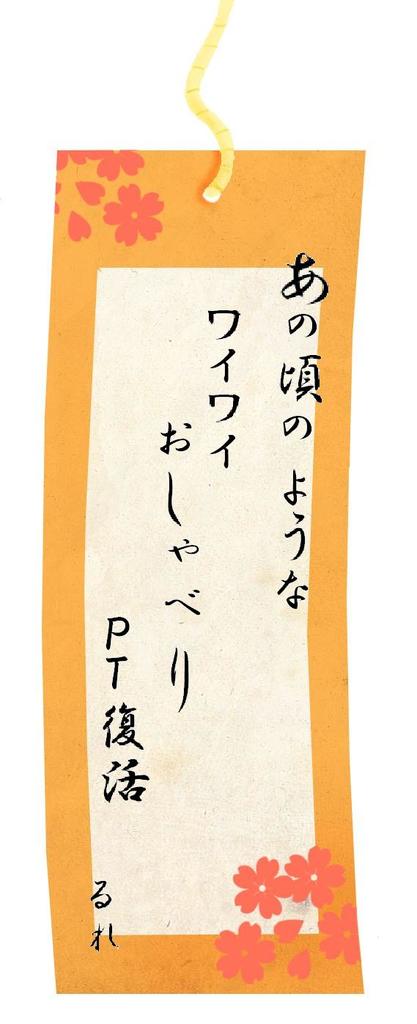 あの頃のような
ワイワイ
おしゃべり
PT復活
るれ